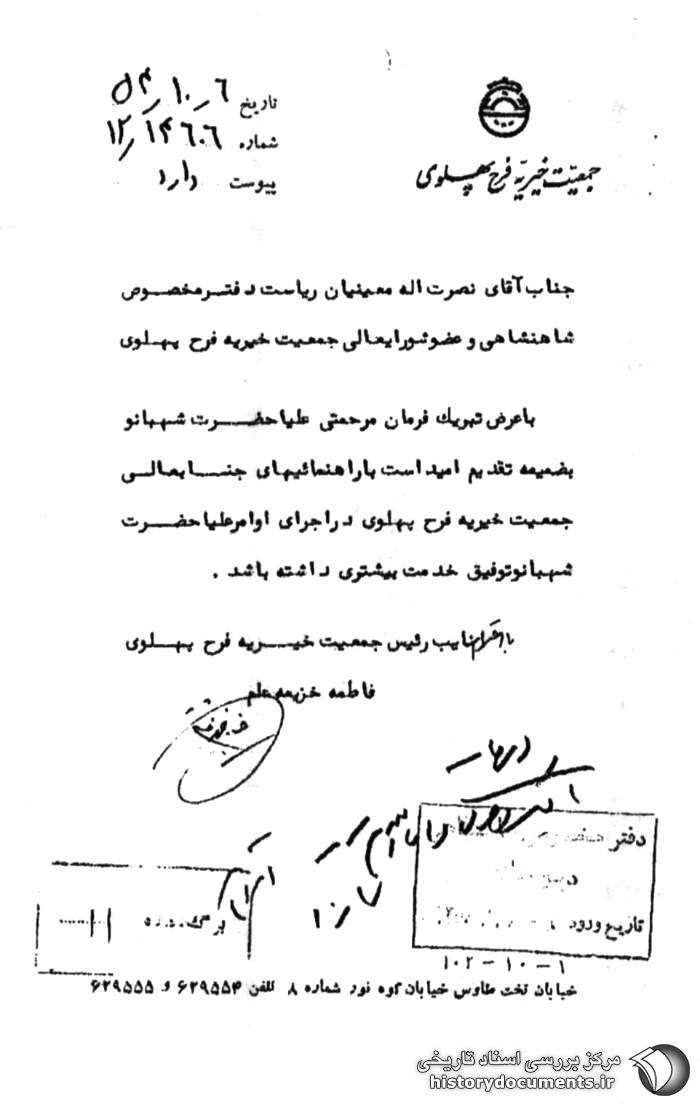 تاریخ ۶-۱۰-۵۴
شماره ۱۲/۱۴۶۰۶
پیوست دارد
جمعیت خیریه فرح پهلوی
جناب آقای نصرت اله معینیان ریاست دفتر مخصوص
شاهنشاهی و عضو شورایعالی جمعیت خیریه فرح پهلوی
با عرض تبریک فرمان مرحمتی علیاحضرت شهبانو
بضمیمه تقدیم امید است با راهنمائیهای جنابعالی
جمعیت خیریه فرح پهلوی در اجرای اوامر علیاحضرت
شهبانو توفیق خدمت بیشتری داشته باشد .
با احترام نایب رئیس جمعیت خیریه فرح پهلوی
فاطمه خزیمه علم
دفتر مخصوص
تاریخ ورود
۱-۱۰-۱۰۲
خیابان تخت طاوس خیابان کوه نور شماره ۸ تلفن ۶۲۹۵۵۴ و ۶۲۹۵۵۵
مرکز بررسی اسناد تاریخی
historydocuments.ir